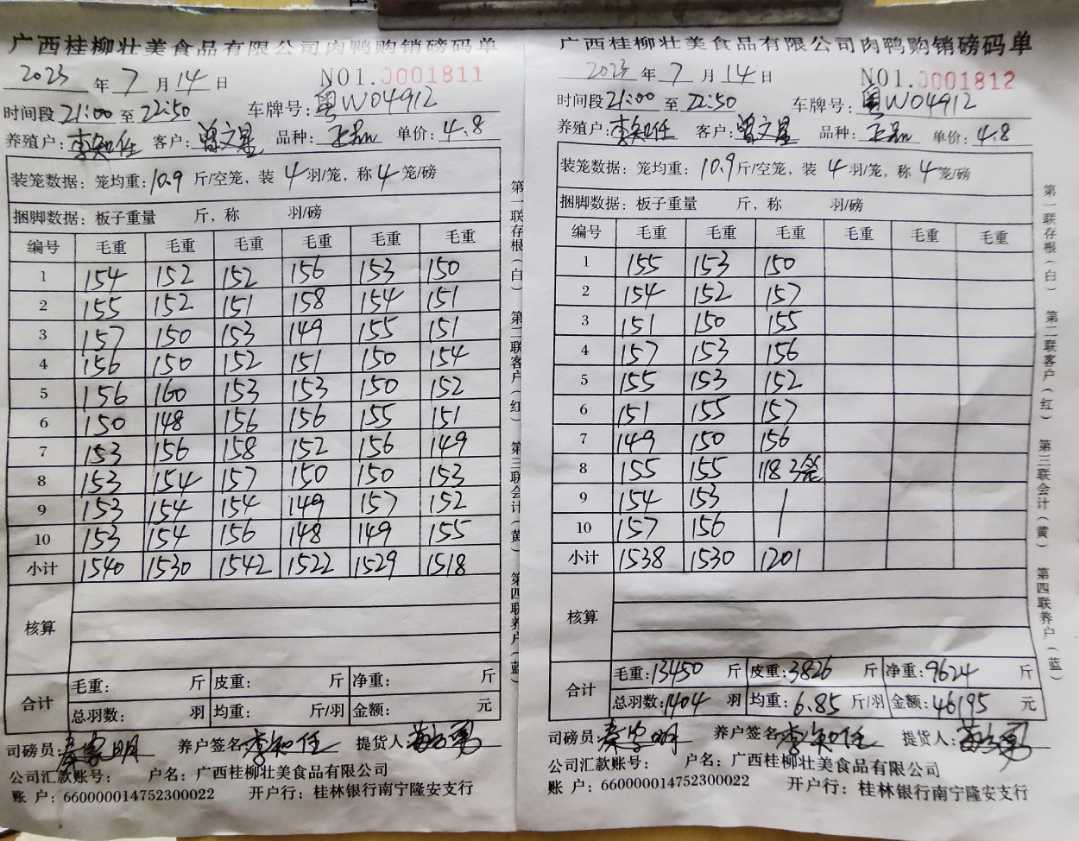 广西桂柳壮美食品有限公司肉鸭购销磅码单
2023 年 7 月 14 日 NO1.0001811
时间段 21:00 至 22:50 车牌号: 粤W04912
养殖户: 李知任 客户: 曾文星 品种: 单价: 4.8
装笼数据: 笼均重: 10.9 斤/空笼, 装 4 羽/笼, 称 4 笼/磅
捆脚数据: 板子重量 斤, 称 羽/磅
编号 毛重 毛重 毛重 毛重 毛重 毛重
1 154 152 152 156 153 150
2 155 152 151 158 154 151
3 157 150 153 149 155 151
4 156 150 152 151 150 154
5 156 160 153 153 150 152
6 150 148 156 156 155 151
7 153 156 158 152 156 149
8 153 154 157 150 150 153
9 153 154 154 149 157 152
10 153 154 156 148 149 155
小计 1540 1530 1542 1522 1529 1518
核算
合计 毛重: 斤 皮重: 斤 净重: 斤
总羽数: 羽 均重: 斤/羽 金额: 元
司磅员: 秦家明 养户签名 李知任 提货人:
公司汇款账号: 户名: 广西桂柳壮美食品有限公司
账 户: 660000014752300022 开户行: 桂林银行南宁隆安支行
第一联存根(白) 第二联客户(红) 第三联会计(黄) 第四联养户(蓝)
广西桂柳壮美食品有限公司肉鸭购销磅码单
2023 年 7 月 14 日 NO1.0001812
时间段 21:00 至 22:50 车牌号: 粤W04912
养殖户: 李知任 客户: 曾文星 品种: 单价: 4.8
装笼数据: 笼均重: 10.9 斤/空笼, 装 4 羽/笼, 称 4 笼/磅
捆脚数据: 板子重量 斤, 称 羽/磅
编号 毛重 毛重 毛重 毛重 毛重 毛重
1 155 153 150
2 154 152 157
3 151 150 155
4 157 153 156
5 155 153 152
6 151 155 157
7 149 150 156
8 155 155 118 3笼
9 154 153 /
10 157 156 /
小计 1538 1530 1201
核算
合计 毛重: 13450 斤 皮重: 3826 斤 净重: 9624 斤
总羽数: 1404 羽 均重: 6.85 斤/羽 金额: 46195 元
司磅员: 秦家明 养户签名 李知任 提货人:
公司汇款账号: 户名: 广西桂柳壮美食品有限公司
账 户: 660000014752300022 开户行: 桂林银行南宁隆安支行
第一联存根(白) 第二联客户(红) 第三联会计(黄) 第四联养户(蓝)